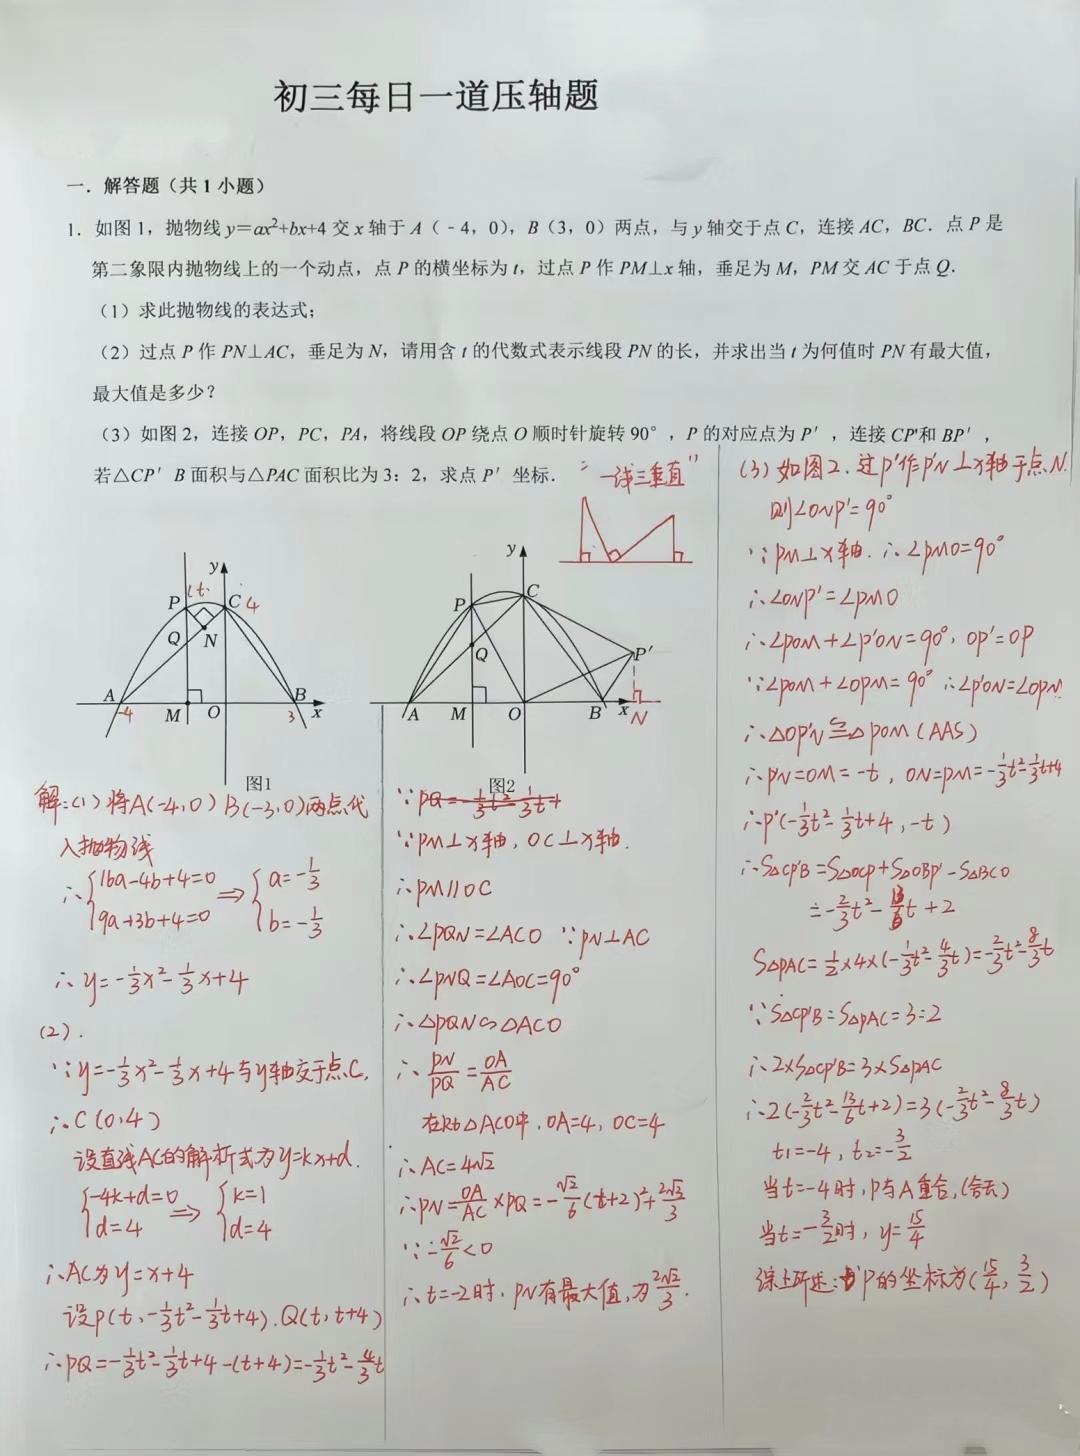 初三每日一道压轴题
一．解答题（共1小题）
1．如图1，抛物线y＝ax²+bx+4交x轴于A（﹣4，0），B（3，0）两点，与y轴交于点C，连接AC，BC．点P是
第二象限内抛物线上的一个动点，点P的横坐标为t，过点P作PM⊥x轴，垂足为M，PM交AC于点Q．
（1）求此抛物线的表达式；
（2）过点P作PN⊥AC，垂足为N，请用含t的代数式表示线段PN的长，并求出当t为何值时PN有最大值，
最大值是多少？
（3）如图2，连接OP，PC，PA，将线段OP绕点O顺时针旋转90°，P的对应点为P′，连接CP′和BP′，
若△CP′B面积与△PAC面积比为3：2，求点P′坐标．
"一线三垂直"
y
P
(t,
C
4
Q
N
A
-4
M
O
B
3
x
图1
y
P
C
Q
P′
A
M
O
B
x
N
图2
解：(1) 将A(-4,0) B(-3,0)两点代
入抛物线
∴ {16a-4b+4=0 ⇒ {a=-1/3
9a+3b+4=0 b=-1/3
∴ y=-1/3x²-1/3x+4
(2).
∵ y=-1/3x²-1/3x+4与y轴交于点C,
∴ C(0,4)
设直线AC的解析式为y=kx+d.
{-4k+d=0 ⇒ {k=1
d=4 d=4
∴ AC为y=x+4
设P(t,-1/3t²-1/3t+4).Q(t,t+4)
∴ PQ=-1/3t²-1/3t+4-(t+4)=-1/3t²-4/3t
∵ PM⊥x轴, OC⊥x轴.
∴ PM∥OC
∴ ∠PQN=∠ACO ∵ PN⊥AC
∴ ∠PNQ=∠AOC=90°
∴ △PQN∽△ACO
∴ PN/PQ=OA/AC
在Rt△ACO中, OA=4, OC=4
∴ AC=4√2
∴ PN=OA/AC×PQ=-√2/6(t+2)²+2√2/3
∵ -√2/6<0
∴ t=-2时, PN有最大值,为2√2/3.
(3) 如图2, 过P'作P'N⊥x轴于点N.
则∠ONP'=90°
∵ PM⊥x轴. ∴ ∠PMO=90°
∴ ∠ONP'=∠PMO
∴ ∠POM+∠P'ON=90°, OP'=OP
∵ ∠POM+∠OPM=90° ∴ ∠P'ON=∠OPM
∴ △OP'N≌△POM(AAS)
∴ P'N=OM=-t, ON=PM=-1/3t²-1/3t+4
∴ P'(-1/3t²-1/3t+4,-t)
∴ S△CP'B=S△OCP'+S△OBP'-S△BCO
=-2/3t²-13/6t+2
S△PAC=1/2×4×(-1/3t²-4/3t)=-2/3t²-8/3t
∵ S△CP'B=S△PAC=3:2
∴ 2×S△CP'B=3×S△PAC
∴ 2(-2/3t²-13/6t+2)=3(-2/3t²-8/3t)
t₁=-4, t₂=-3/2
当t=-4时, P与A重合,(舍去)
当t=-3/2时, y=15/4
综上所述: P的坐标为(15/4, 3/2)